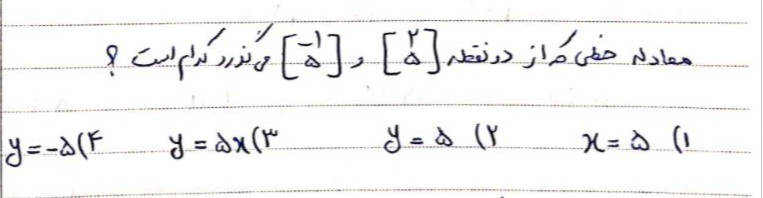 معادله خطی که از دو نقطه [۲ ۵] و [-۱ ۵] می‌گذرد کدام است ؟
۱) x = ۵ ۲) y = ۵ ۳) y = ۵x ۴) y = -۵